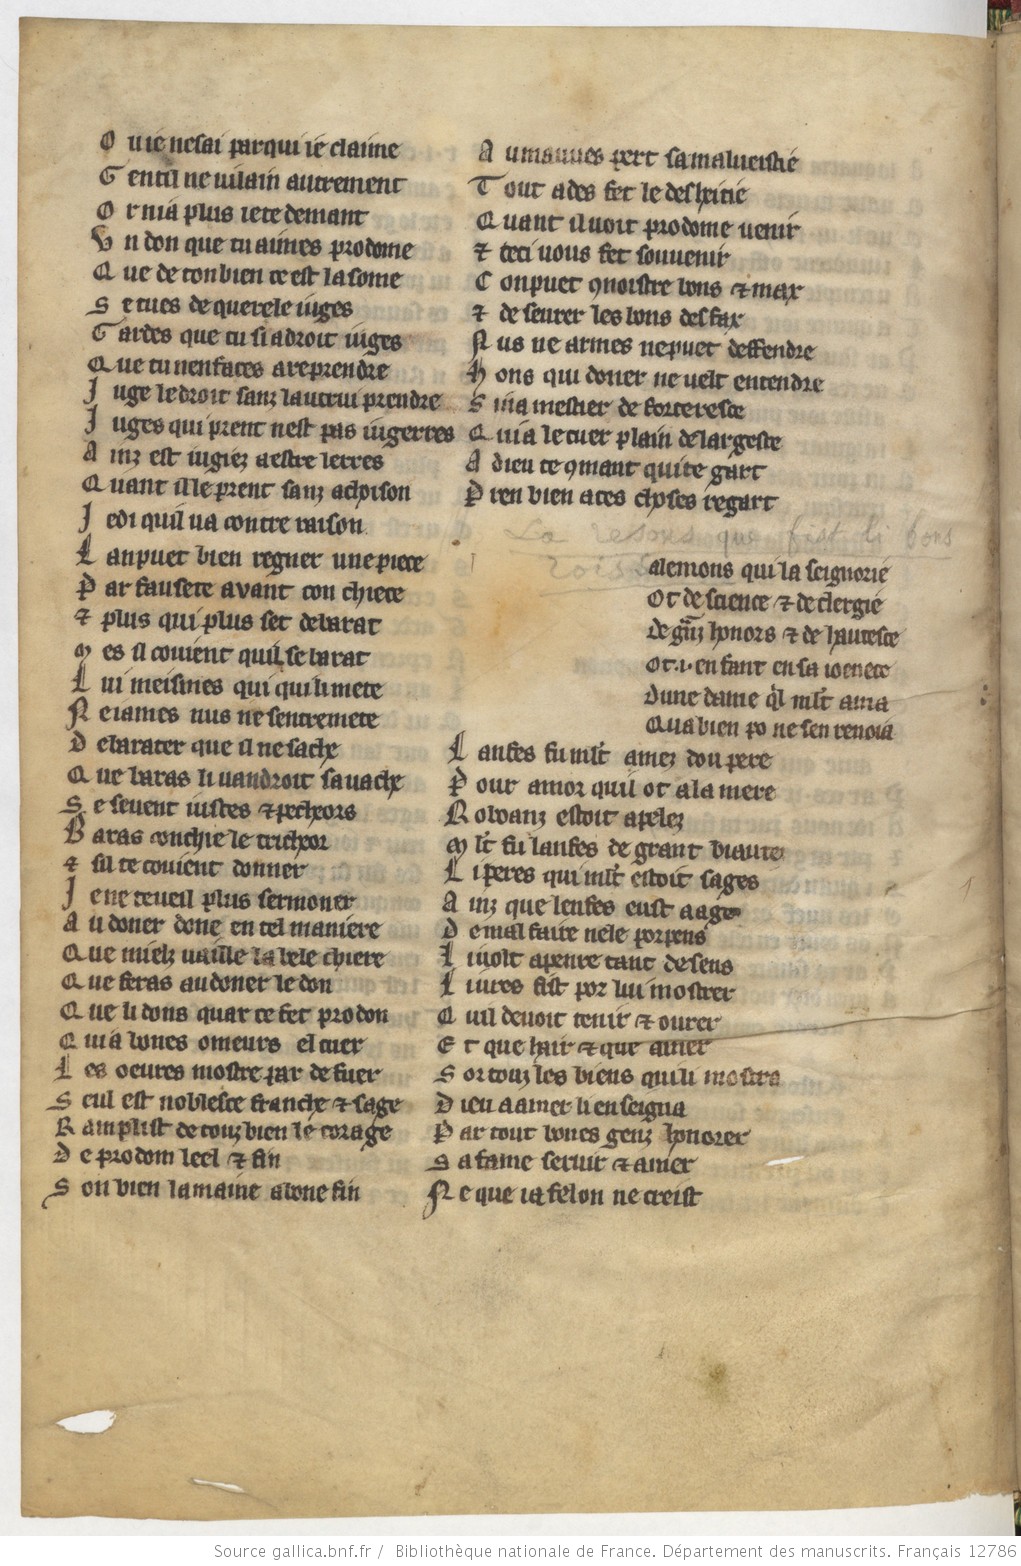 O u ie ne sai par qui ie claime
G entil ne uilain autrement
O r nia plus ie te demant
V n don que tu aimes prodome
Q ue de ton bien ce est la some
S e tu es de querele iuges
G ardes que tu si adroit iuges
Q ue tu nen faces a reprendre
J uge le droit sanz lautrui prendre
J uges qui prent nest pas iugerres
A inz est iugiez a estre lerres
Q uant il le prent sanz achoison
J e di quil ua contre raison
L an puet bien regner une piece
P ar fausete avant con chiece
⁊ plus qui plus set de barat
M es il couient quil se barat
L ui meismes qui quil i mete
N e iames nus ne sentremete
D e barater que il ne sache
Q ue baras li uandroit sa uache
S e seuent iustes ⁊ pecheors
B aras conchie le tricheor
⁊ sil te couient donner
J e ne te ueil plus sermoner
A u doner done en tel maniere
Q ue mielz uaille la bele chiere
Q ue feras au doner le don
Q ue li dons quar ce fet prodon
Q ui a bones omeurs el cuer
L es oeures mostre par defuer
S eul est noblesce franche ⁊ sage
R amplist de touz bien le corage
D e prodom leel ⁊ fin
S on bien la maine a bone fin
A u mauues pert sa malueistie
T out ades fet le desheitie
Q uant il uoit prodome uenir
⁊ ceci uous fet souuenir
C on puet 9noistre bons ⁊ max
⁊ deseurer les bons des fax
N us ne armes ne puet deffendre
H ons qui doner ne uelt entendre
S ni a mestier de forteresce
Q ui a le cuer plain de largesce
A dieu te 9mant qui te gart
P ren bien a ces choses regart
La resons que fist li bons
rois
alemons qui la seignorie
Ot de science ⁊ de clergie
de g̃nz honors ⁊ de hautesce
Ot .i. enfant en sa ioenece
dune dame q̃l ml̃t ama
Qua bien po ne sen renoia
L anfes fu ml̃t amez dou pere
P our amor quil ot a la mere
R oboanz estoit apelez
M l̃t fu lanfes de grant biaute
L i peres qui ml̃t estoit sages
A inz que lenfes eust aage
D e mal faire ne le porpens
L i uolt apenre tant de sens
L iures fist por lui mostrer
Q uil deuoit tenir ⁊ ourer
E t que hair ⁊ que amer
S or touz les biens quil i mostra
D ieu a amer li enseigna
P ar tout bones genz honorer
S a fame seruir ⁊ amer
N e que ia felon ne creist
Source gallica.bnf.fr / Bibliothèque nationale de France. Département des manuscrits. Français 12786